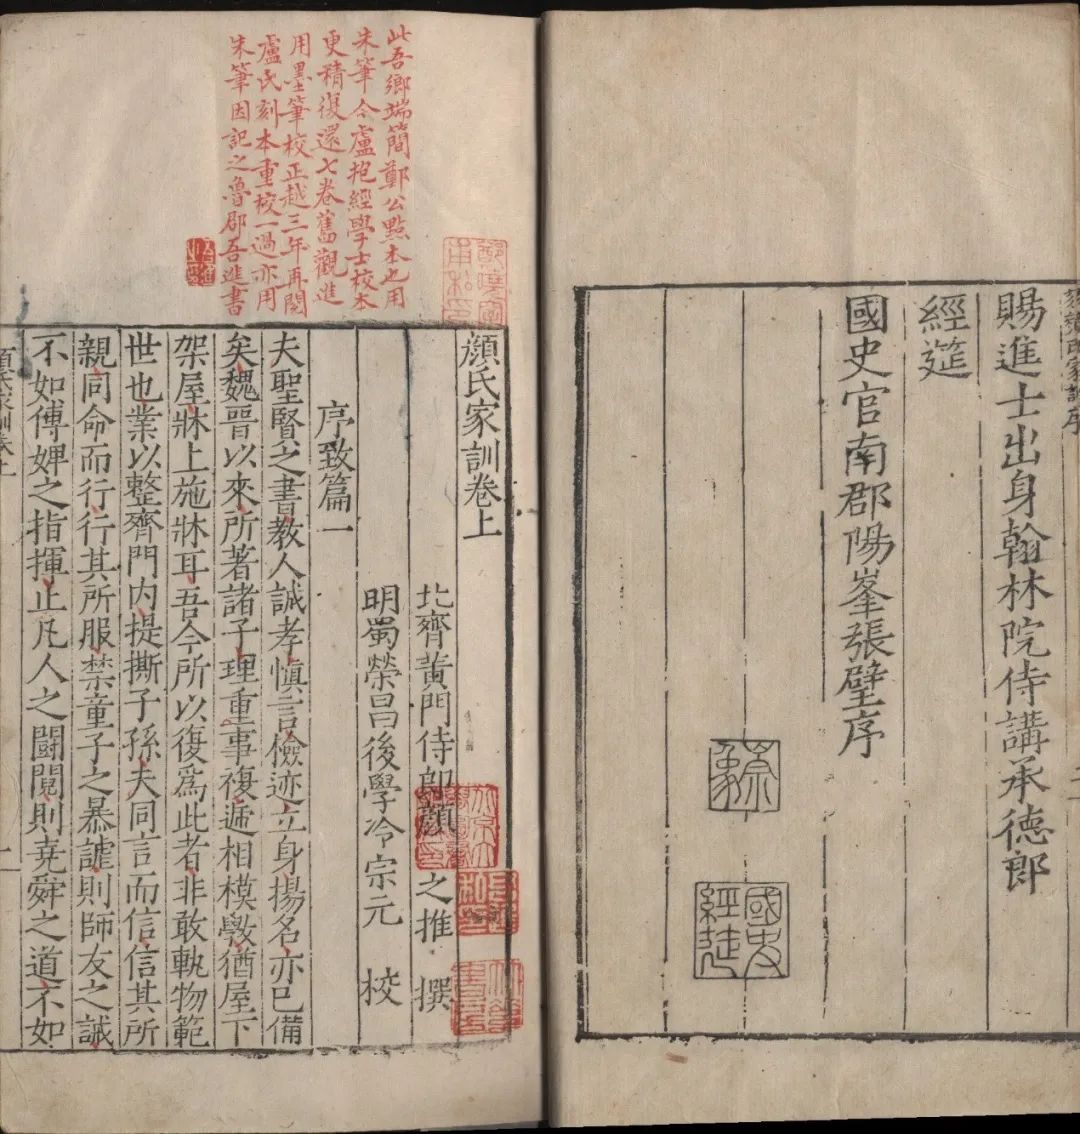 賜進士出身翰林院侍講承德郎
經筵
國史官南郡陽峯張璧序
國史
經筵
此吾鄉端簡鄭公點本也用
朱筆今盧抱經學士校本
更精復還七卷舊觀進
用墨筆校正越三年再閱
盧氏刻本重校一過亦用
朱筆因記之魯郡吾進書
顔氏家訓卷上
北齊黄門侍郎顔之推 撰
明蜀榮昌後學冷宗元 校
序致篇一
夫聖賢之書教人誠孝慎言檢迹立身揚名亦已備
矣魏晉以來所著諸子理重事複遞相模斆猶屋下
架屋牀上施牀耳吾今所以復爲此者非敢軌物範
世也業以整齊門内提撕子孫夫同言而信信其所
親同命而行行其所服禁童子之暴謔則師友之誡
不如傅婢之指揮止凡人之鬭鬩則堯舜之道不如